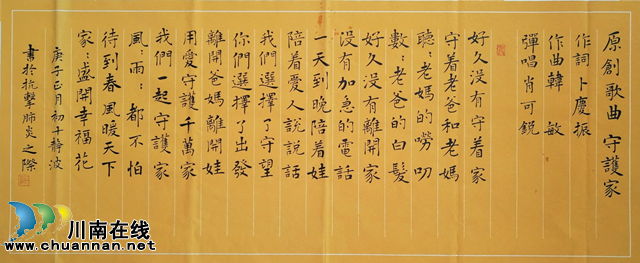 原創歌曲 守護家
作詞卜慶振
作曲韓 敏
彈唱肖可銳
好久没有守着家
守着老爸和老媽
聽：老媽的嘮叨
數：老爸的白髮
好久没有離開家
没有加急的電話
一天到晚陪着娃
陪着愛人説説話
我們選擇了守望
你們選擇了出發
離開爸媽離開娃
用愛守護千萬家
我們一起守護家
風：雨：都不怕
待到春風暖天下
家：盛開幸福花
庚子正月初十静波
書於抗擊肺炎之際
川南在线
www.chuannan.net